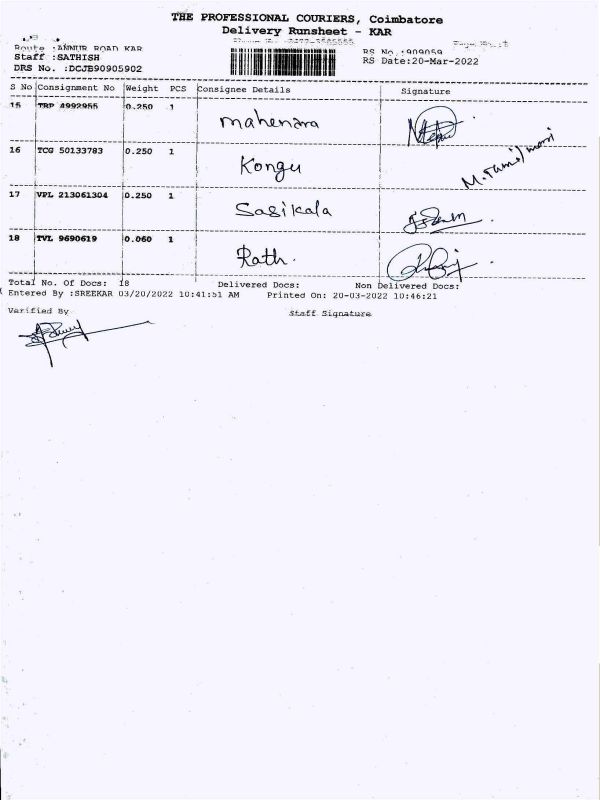 THE PROFESSIONAL COURIERS, Coimbatore
Delivery Runsheet - KAR
Route :ANNUR ROAD KAR
RS No.:909059
Staff :SATHISH
RS Date:20-Mar-2022
DRS No. :DCJB90905902
S No Consignment No Weight PCS Consignee Details Signature
15 TRP 4992955 0.250 1 Mahendra
16 TCG 50133783 0.250 1 Kongu M.Tamilmani
17 VPL 213061304 0.250 1 Sasikala
18 TVL 9690619 0.060 1 Rath.
Total No. Of Docs: 18 Delivered Docs: Non Delivered Docs:
Entered By :SREEKAR 03/20/2022 10:41:51 AM Printed On: 20-03-2022 10:46:21
Varified By Staff Signature